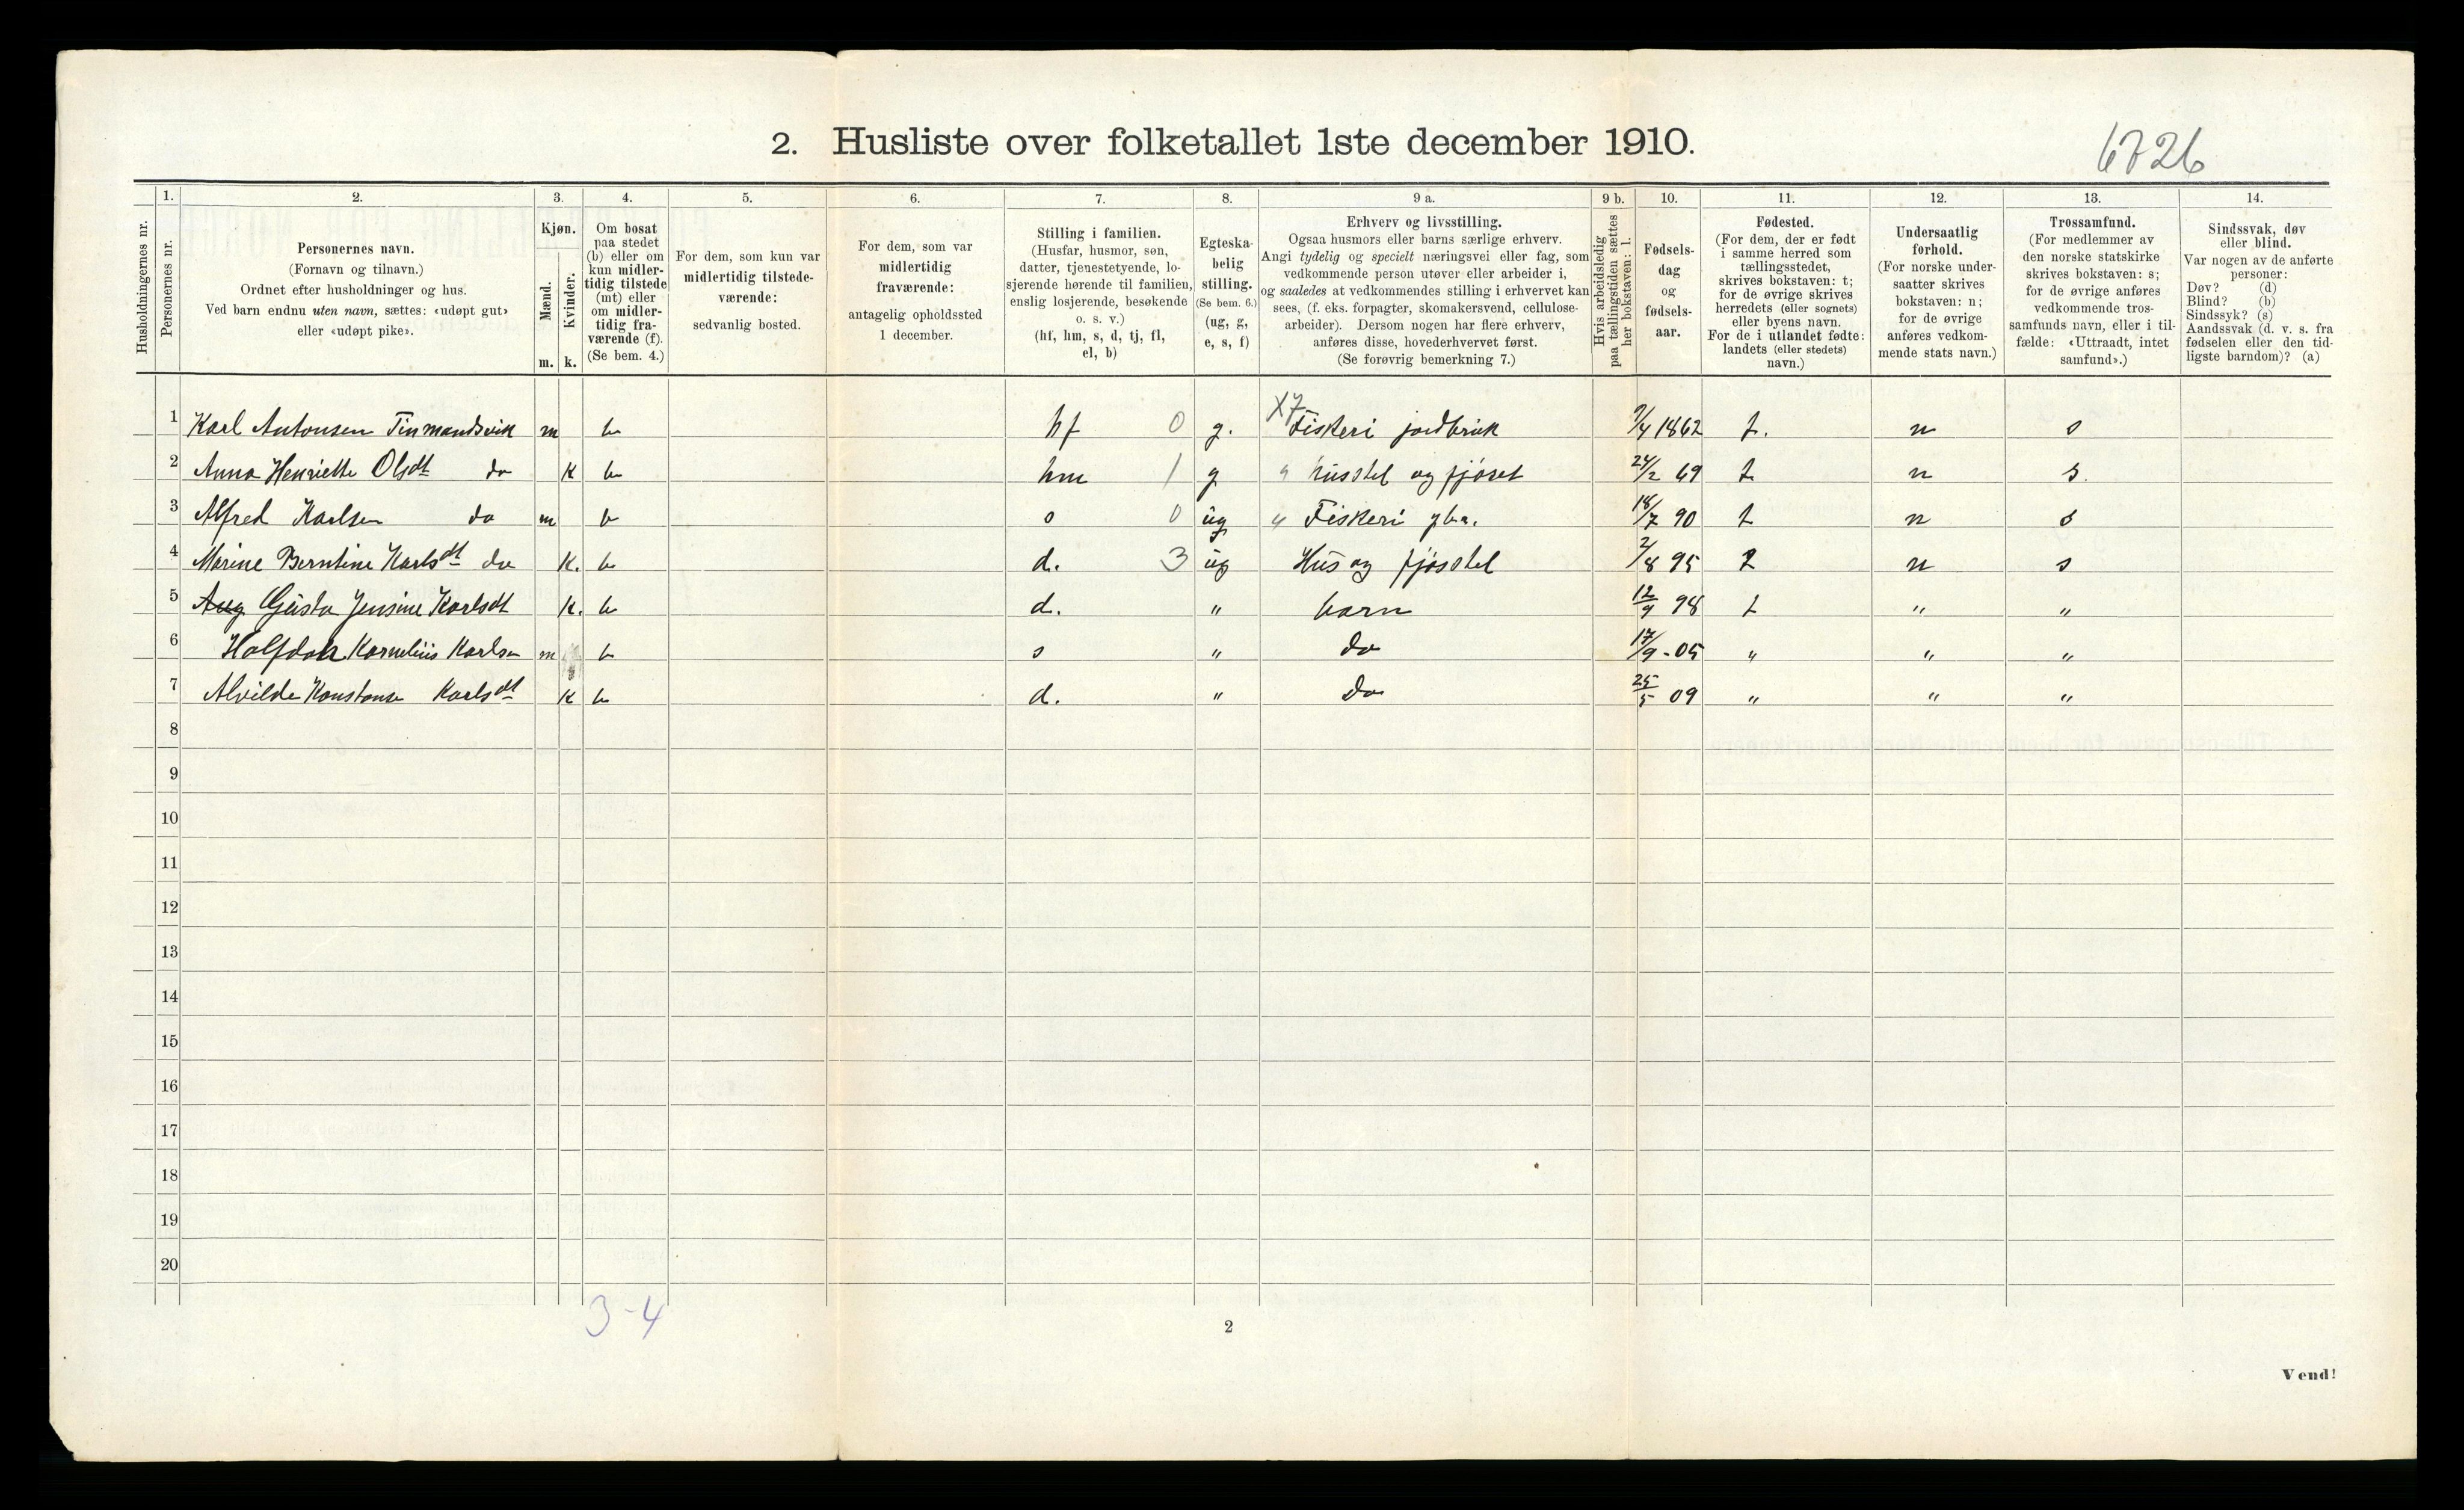 2. Husliste over folketallet 1ste december 1910.
6726
Husholdningernes nr.
1. Personernes nr.
2. Personernes navn.
(Fornavn og tilnavn.)
Ordnet efter husholdninger og hus.
Ved barn endnu uten navn, sættes: «udøpt gut»
eller «udøpt pike».
3. Kjøn.
Mænd. m.
Kvinder. k.
4. Om bosat
paa stedet
(b) eller om
kun midler-
tidig tilstede
(mt) eller
om midler-
tidig fra-
værende (f).
(Se bem. 4.)
5. For dem, som kun var
midlertidig tilstede-
værende:
sedvanlig bosted.
6. For dem, som var
midlertidig
fraværende:
antagelig opholdssted
1 december.
7. Stilling i familien.
(Husfar, husmor, søn,
datter, tjenestetyende, lo-
sjerende hørende til familien,
enslig losjerende, besøkende
o. s. v.)
(hf, hm, s, d, tj, fl,
el, b)
8. Egteska-
belig
stilling.
(Se bem. 6.)
(ug, g,
e, s, f)
9 a. Erhverv og livsstilling.
Ogsaa husmors eller barns særlige erhverv.
Angi tydelig og specielt næringsvei eller fag, som
vedkommende person utøver eller arbeider i,
og saaledes at vedkommendes stilling i erhvervet kan
sees, (f. eks. forpagter, skomakersvend, cellulose-
arbeider). Dersom nogen har flere erhverv,
anføres disse, hovederhvervet først.
(Se forøvrig bemerkning 7.)
9 b. Hvis arbeidsledig
paa tællingstiden sættes
her bokstaven: l.
10. Fødsels-
dag
og
fødsels-
aar.
11. Fødested.
(For dem, der er født
i samme herred som
tællingsstedet,
skrives bokstaven: t;
for de øvrige skrives
herredets (eller sognets)
eller byens navn.
For de i utlandet fødte:
landets (eller stedets)
navn.)
12. Undersaatlig
forhold.
(For norske under-
saatter skrives
bokstaven: n;
for de øvrige
anføres vedkom-
mende stats navn.)
13. Trossamfund.
(For medlemmer av
den norske statskirke
skrives bokstaven: s;
for de øvrige anføres
vedkommende tros-
samfunds navn, eller i til-
fælde: «Uttraadt, intet
samfund».)
14. Sindssvak, døv
eller blind.
Var nogen av de anførte
personer:
Døv? (d)
Blind? (b)
Sindssyk? (s)
Aandssvak (d. v. s. fra
fødselen eller den tid-
ligste barndom)? (a)
X7
1 Karl Antonsen Finmandsvik m b hf 0 g. Fiskeri jordbruk 9/4 1862 t. n s
2 Anna Henriette Olsdt do k b hm 1 g " husstel og fjøset 24/2 69 t n s.
3 Alfred Karlsen do m b s 0 ug " Fiskeri gba. 18/7 90 t n s
4 Marine Berntine Karlsdt do k. b d. 3 ug Hus og fjøsstel 2/8 95 t n s
5 Aug Gusta Jensine Karlsdt k. b d. " barn 12/9 98 t " "
6 Halfdan Kornelius Karlsen m b s " do 17/9 - 05 " " "
7 Alvilde Konstanse Karlsdt k b d. " Do 25/5 09 " " "
8
9
10
11
12
13
14
15
16
17
18
19
20
3-4
2
Vend!